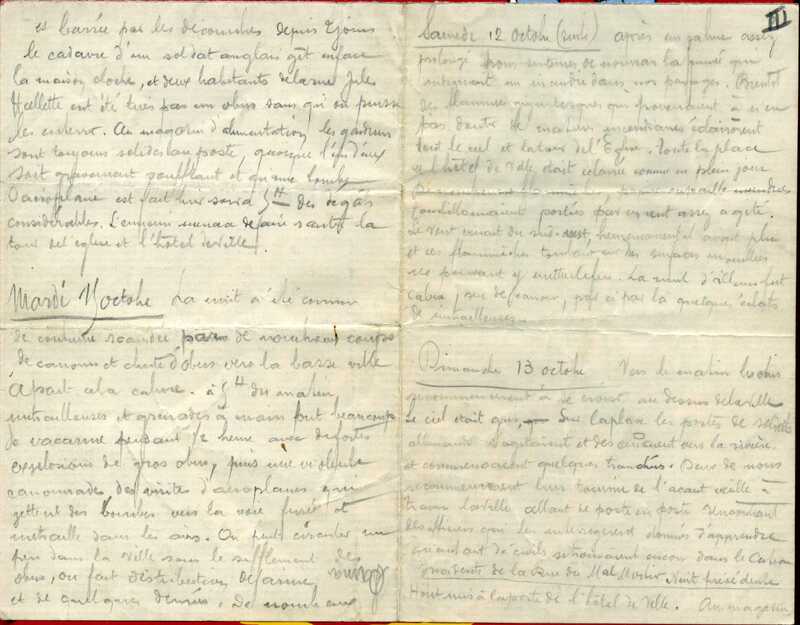 est barrée par les décombres depuis 4 jours
le cadavre d'un soldat anglais gît en face
la maison cloche, et deux habitants de la rue Jules
ont été tués par un obus sans qu'on puisse
les enterrer. Au magasin d'alimentation, les gardiens
sont toujours solides au poste, quoique l'un d'eux
soit gravement souffrant et qu'une bombe
d'aéroplane est fait hier soir à 5H des dégâts
considérables. L'ennemi menace de faire sauter la
tour del eglise et l'hôtel de ville.
Mardi 15 octobre La nuit a été comme
de coutume scandée par de nombreux coups
de canons et chute d'obus vers la basse ville
À part cela calme. à 5H du matin
mitrailleuses et grenades à main font beaucoup
de vacarme pendant 1/2 heure avec de fortes
explosions de gros obus, puis une violente
canonnade, des visites d'aéroplanes qui
jettent des bombes vers la voie ferrée et
mitraille dans les airs. On peut circuler un
peu dans la ville sous le sifflement des
obus, on fait distribution de farine
et de quelques denrées. De nombreux
III
Samedi 12 Octobre (suite) après un calme assez
prolongé nous sentîmes de nouveau la fumée qui
un incendie dans nos parages. Bientôt
des flammes gigantesques qui provenaient à n'en
pas douter de matières incendiaires éclairèrent
tout le ciel et la tour de l'Eglise. Toute la place
et l'hôtel de Ville était éclairée comme en plein jour
portées par un vent assez agité.
Le vent venait du sud-ouest, heureusement il avait plu
et ces flammèches tombant sur des surfaces mouillées
ne pouvaient y mettre le feu. La nuit d'ailleurs fut
calme, peu de canon, par ci par là quelques éclats
de mitrailleuses.
Dimanche 13 octobre Vers le matin les obus
recommencèrent à se croiser au dessus de la ville
Le ciel était gris, Sur la place les postes de soldats
allemands s'agitaient et des vers la rivière
et commencaient quelques tranchées. Deux de nous
recommencèrent leur tournée de l'avant veille à
travers la ville allant de poste en poste
des officiers qui les interrogèrent étonnés d'apprendre
qu'autant de civils se trouvaient encore dans le Cateau
de la Rue du Mal Mortier
à la porte de l'hôtel de Ville. Au magasin